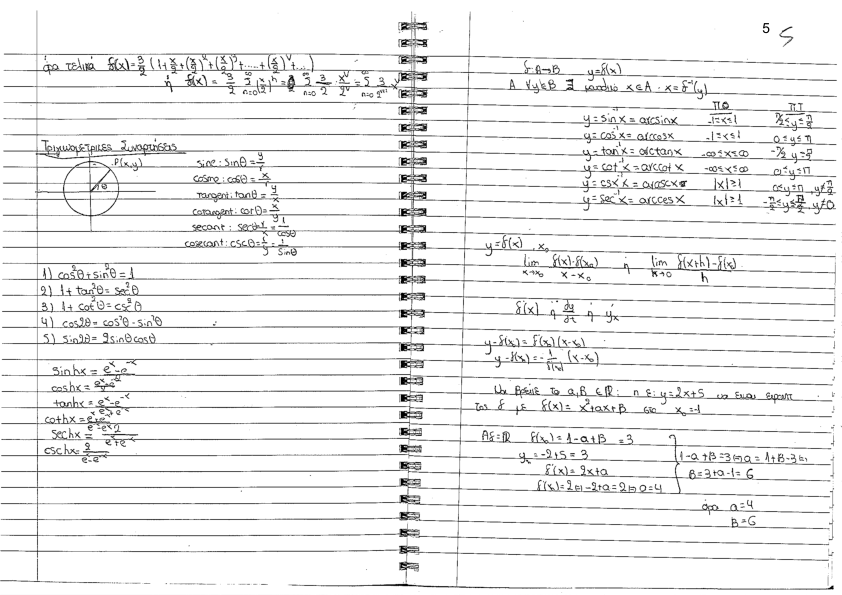 άρα τελικά f(x)=3/2 (1+x/2+(x/2)²+(x/2)³+.....+(x/2)^ν+...)
ή f(x) = 3/2 ∞Σn=0 (x/2)^n = ∞Σn=0 3/2 · x^ν/2^ν = ∞Σn=0 3/2^(n+1) x^ν
Τριγωνομετρικές Συναρτήσεις
P(x,y)
θ
sine: sinθ = y/r
cosine: cosθ = x/r
tangent: tanθ = y/x
cotangent: cotθ = x/y
secant: secθ = r/x = 1/cosθ
cosecant: cscθ = r/y = 1/sinθ
1) cos²θ+sin²θ=1
2) 1+tan²θ=sec²θ
3) 1+cot²θ=csc²θ
4) cos2θ=cos²θ-sin²θ
5) sin2θ=2sinθcosθ
sinhx = e^x-e^-x
coshx =
tanhx = e^x-e^-x / e^x+e^-x
cothx = e^x+e^-x / e^x-e^-x
sechx = 2 / e^x+e^-x
cschx = 2 / e^x-e^-x
5 5
f: A→B y=f(x)
A ∀y∈B ∃ μοναδικό x∈A · x=f⁻¹(y)
Π.Ο Π.Τ
y=sin⁻¹x=arcsinx -1≤x≤1
y=cos⁻¹x=arccosx -1≤x≤1 0≤y≤π
y=tan⁻¹x=arctanx -∞≤x≤∞ -π/2 y=π/2
y=cot⁻¹x=arccotx -∞≤x≤∞ 0≤y≤π
y=csx⁻¹x=arccscx |x|≥1 0≤y≤π, y≠π/2
y=sec⁻¹x=arccesx |x|≥1 -π/2≤y≤π/2, y≠0
y=f(x) x₀
lim x→x₀ f(x)-f(x₀) / x-x₀ ή lim h→0 f(x+h)-f(x) / h
f'(x) ή dy/dx ή y'x
y-f(x₀)=f'(x₀)(x-x₀)
y-f(x₀)=-1/f'(x₀) (x-x₀)
Να βρείτε το a,B ∈ ℝ: η ε: y=2x+5 να είναι
της f με f(x)=x²+ax+B στο x₀=-1
Af=ℝ f(x₀)=1-a+B =3
yx₀=-2+5=3
f'(x)=2x+a
f'(x₀)=2⇔-2+a=2⇔a=4
1-a+B=3⇔a=1+B-3⇔
B=3+a-1=6
άρα a=4
B=6